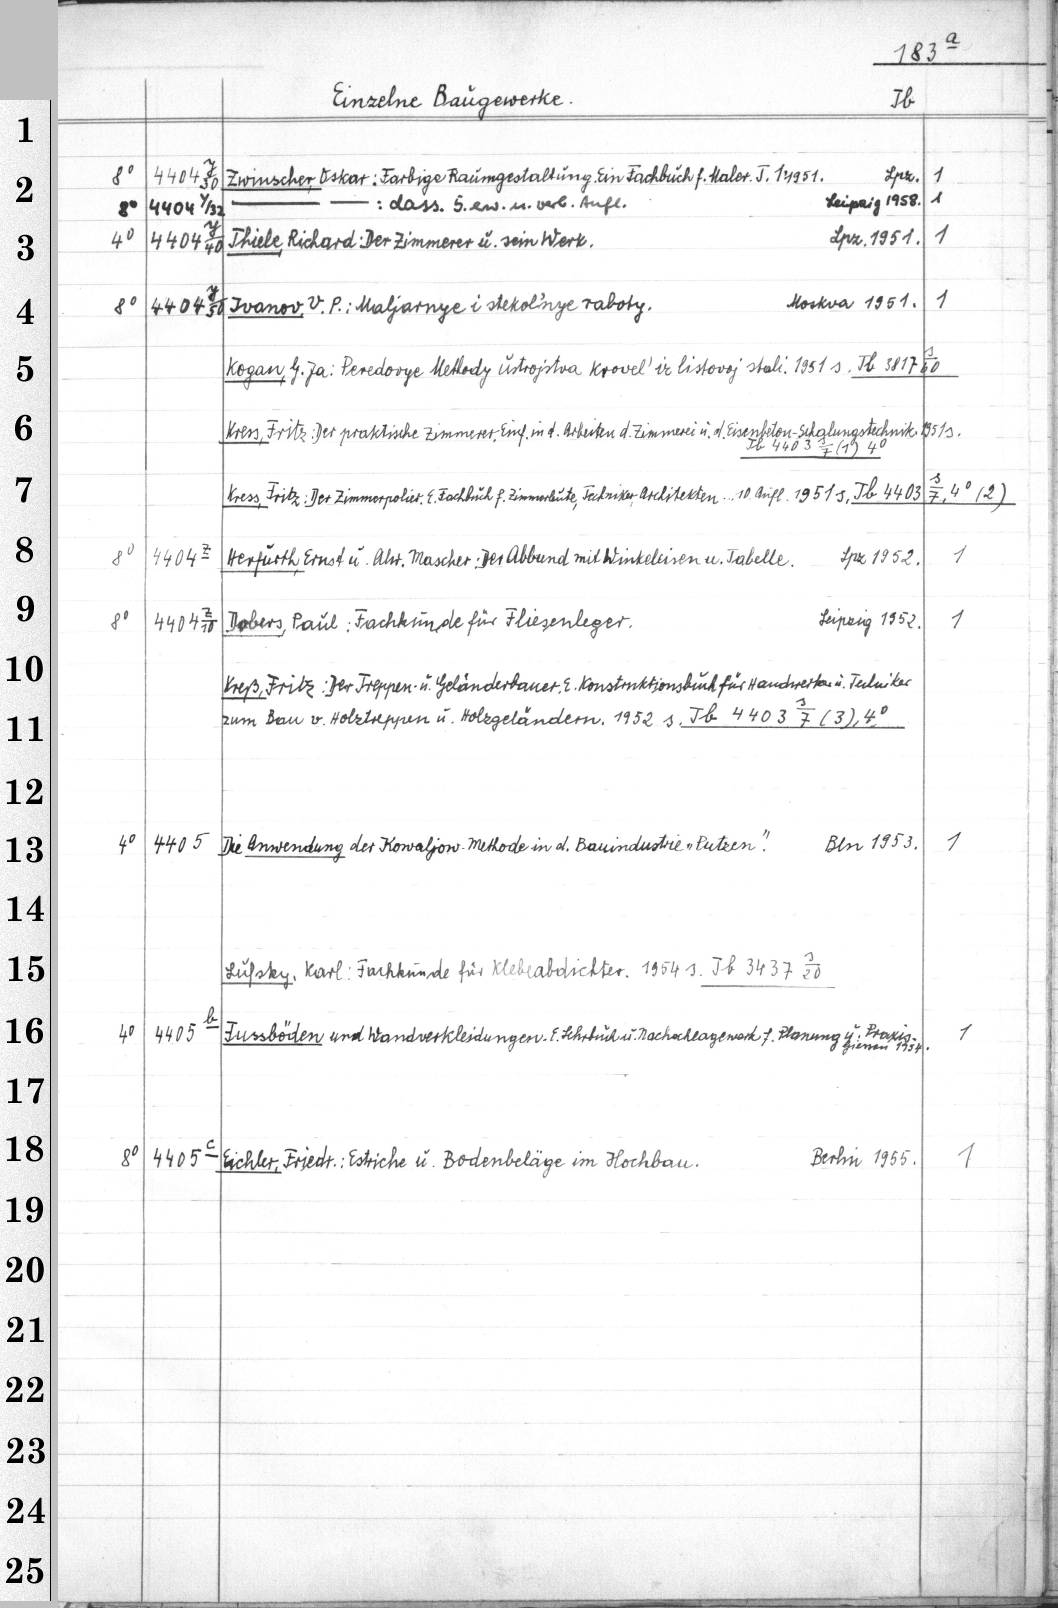 183 a
Einzelne Baŭgewerke. Tb
1
2 8° 4404 y/30 Zwinscher, Oskar: Farbige Raŭmgestaltŭng. Ein Fachbŭch f. Maler. T. 1 1951. Lpz. 1
8° 4404 y/32 ——— — : dass. 5. erw. u. verb. Aufl. Leipzig 1958. 1
3 4° 4404 y/40 Thiele, Richard: Der Zimmerer ŭ. sein Werk. Lpz. 1951. 1
4 8° 4404 y/50 Ivanov, V. P.: Maljarnye i stekol'nye raboty. Moskva 1951. 1
5 Kogan, G. Ja: Peredovye Methody ŭstrojstva krovel' iz listovoj stali. 1951 s. Tb 3817 s/60
6 Kress, Fritz: Der praktische Zimmerer. Einf. in d. Arbeiten d. Zimmerei ŭ. d. Eisenbeton-Schalungstechnik. 1951 s.
Tb 4403 s/7 (1) 4°
7 Kress, Fritz: Der Zimmerpolier. E. Fachbŭch f. Zimmerleute, Techniker, Architekten ... 10. Aufl. 1951 s. Tb 4403 s/7, 4° (2)
8 8° 4404 z Herfŭrth, Ernst ŭ. Alw. Mascher: Der Abbund mit Winkeleisen u. Tabelle. Lpz 1952. 1
9 8° 4404 z/10 Dobers, Paŭl: Fachkŭnde für Fliesenleger. Leipzig 1952. 1
10 Kreß, Fritz: Der Treppen- ŭ. Geländerbauer. E. Konstruktionsbuch für Handwerker ŭ. Techniker
11 zum Bau v. Holztreppen ŭ. Holzgeländern. 1952 s. Tb 4403 s/7 (3), 4°
12
13 4° 4405 Die Anwendung der Kowaljow-Methode in d. Bauindustrie „Putzen". Bln 1953. 1
14
15 Lufsky, Karl: Fachkŭnde für Klebeabdichter. 1954 s. Tb 3437 s/20
16 4° 4405 b Fussböden und Wandverkleidungen. E. Lehrbuch u. Nachschlagewerk f. Planung ŭ. Praxis. 1
1954.
17
18 8° 4405 c Eichler, Friedr.: Estriche ŭ. Bodenbeläge im Hochbau. Berlin 1955. 1
19
20
21
22
23
24
25